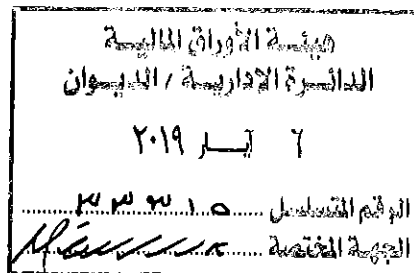 هيئة الأوراق المالية
الدائرة الإدارية / الديوان
٦ آيـــار ٢٠١٩
الرقم المتسلسل ٣٣٣١٥
الجهة المختصة